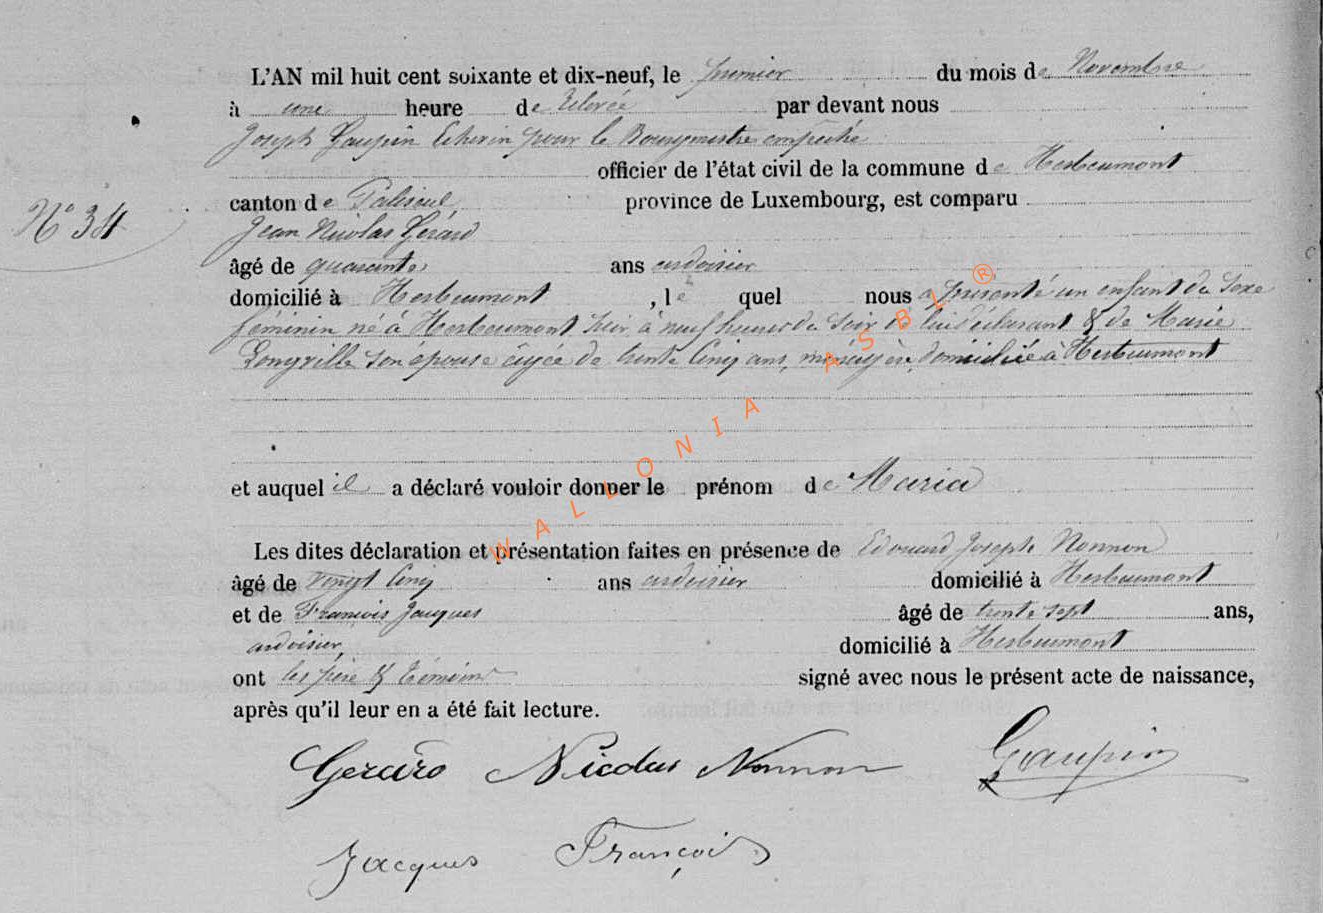 L'AN mil huit cent soixante et dix-neuf, le premier du mois de Novembre
à une heure de relevée par devant nous
Joseph Gaupin Echevin pour le Bourgmestre empêché
officier de l'état civil de la commune de Herbeumont
N° 34
canton de Paliseul province de Luxembourg, est comparu
Jean Nicolas Gérard
âgé de quarante ans ardoisier
domicilié à Herbeumont, lequel nous a présenté un enfant du sexe
féminin né à Herbeumont hier à neuf heures du soir de lui déclarant & de Marie
Longville son épouse âgée de trente cinq ans, ménagère, domiciliée à Herbeumont
et auquel il a déclaré vouloir donner le prénom de Maria
Les dites déclaration et présentation faites en présence de Edouard Joseph Nonnon
âgé de vingt cinq ans ardoisier domicilié à Herbeumont
et de François Jacques âgé de trente sept ans,
ardoisier, domicilié à Herbeumont
ont les père & témoins signé avec nous le présent acte de naissance,
après qu'il leur en a été fait lecture.
Gerard Nicolas Nonnon Gaupin
Jacques François
WALLONIA ASBL ®